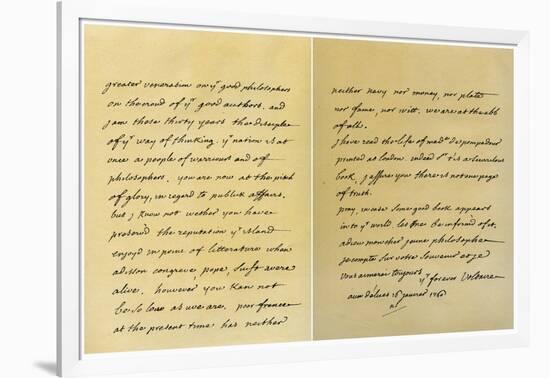 greater veneration on yr good philosophers
on the croud of yr good authors. and
j am these thirty years the disciple
of yr way of thinking. yr nation is at
once a people of warriours and of
philosophers. you are now at the pitch
of glory, in regard to publick affairs.
but j know not wether you have
preserved the reputation yr island
enjoy'd in point of litterature when
adison congreve pope, swift were
alive. however you kan not
be so low as we are. poor france
at the present time has neither
neither navy nor money, nor plate
nor fame, nor witt. we are at the ebb
of all.
j have read the life of madme de pompadour
printed at london. indeed sr t'is a scurulous
book. j assure you there is not one page
of truth.
pray, in case some good book appears
in to yr world let me be inform'd of it.
adieu mon cher jeune philosophe
je compte sur votre souvenir et je
vous aimerai toujours
yr forever Voltaire
aux délices 16 janvier 1760